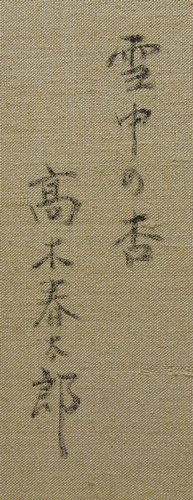 雪中の香
高木春太郎